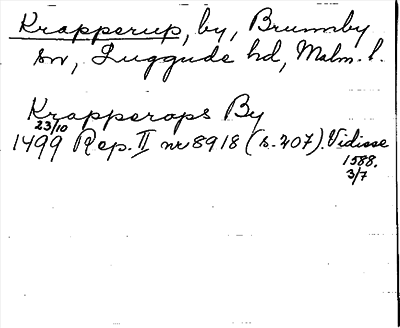 Krapperup, by, Brunnby
sn, Luggude hd, Malm. l.
Krapperops By
23/10
1499 Rep. II nr 8918 (s. 207). Vidisse
1588.
3/7